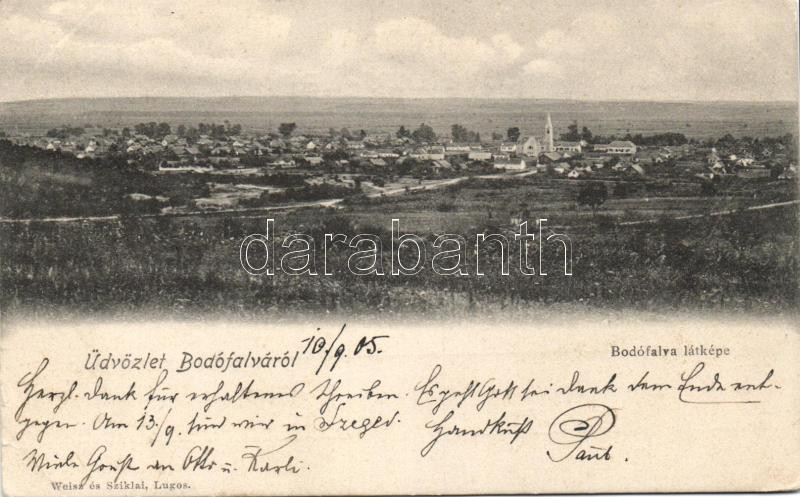 darabanth
10/9. 05.
Üdvözlet Bodófalváról
Bodófalva látképe
Herzl. dank für erhaltenes Schreiben. Es geht Gott sei dank dem Ende ent-
gegen. Am 13./9. sind wir in Szeged. Handkuß Paul.
Viele Grüße an Otto u. Karli.
Weisz és Sziklai, Lugos.